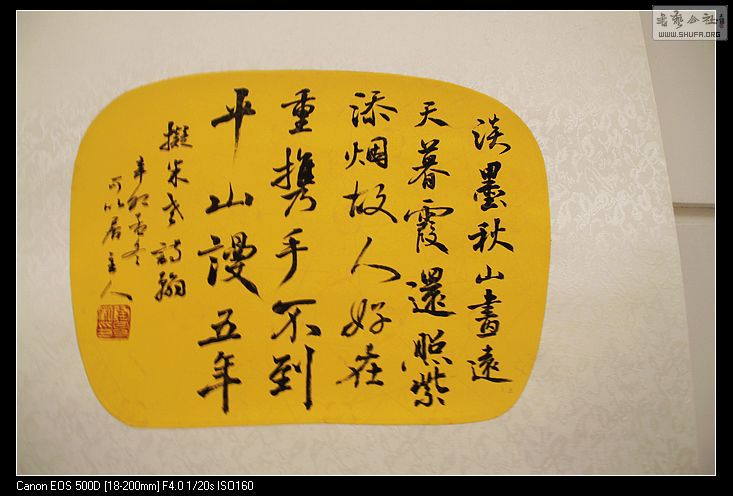 淡墨秋山畫遠
天暮霞還照紫
添烟故人好在
重携手不到
平山謾五年
擬米老詩翰
辛卯孟冬
可以居主人
書藝公社
WWW.SHUFA.ORG
Canon EOS 500D [18-200mm] F4.0 1/20s ISO160